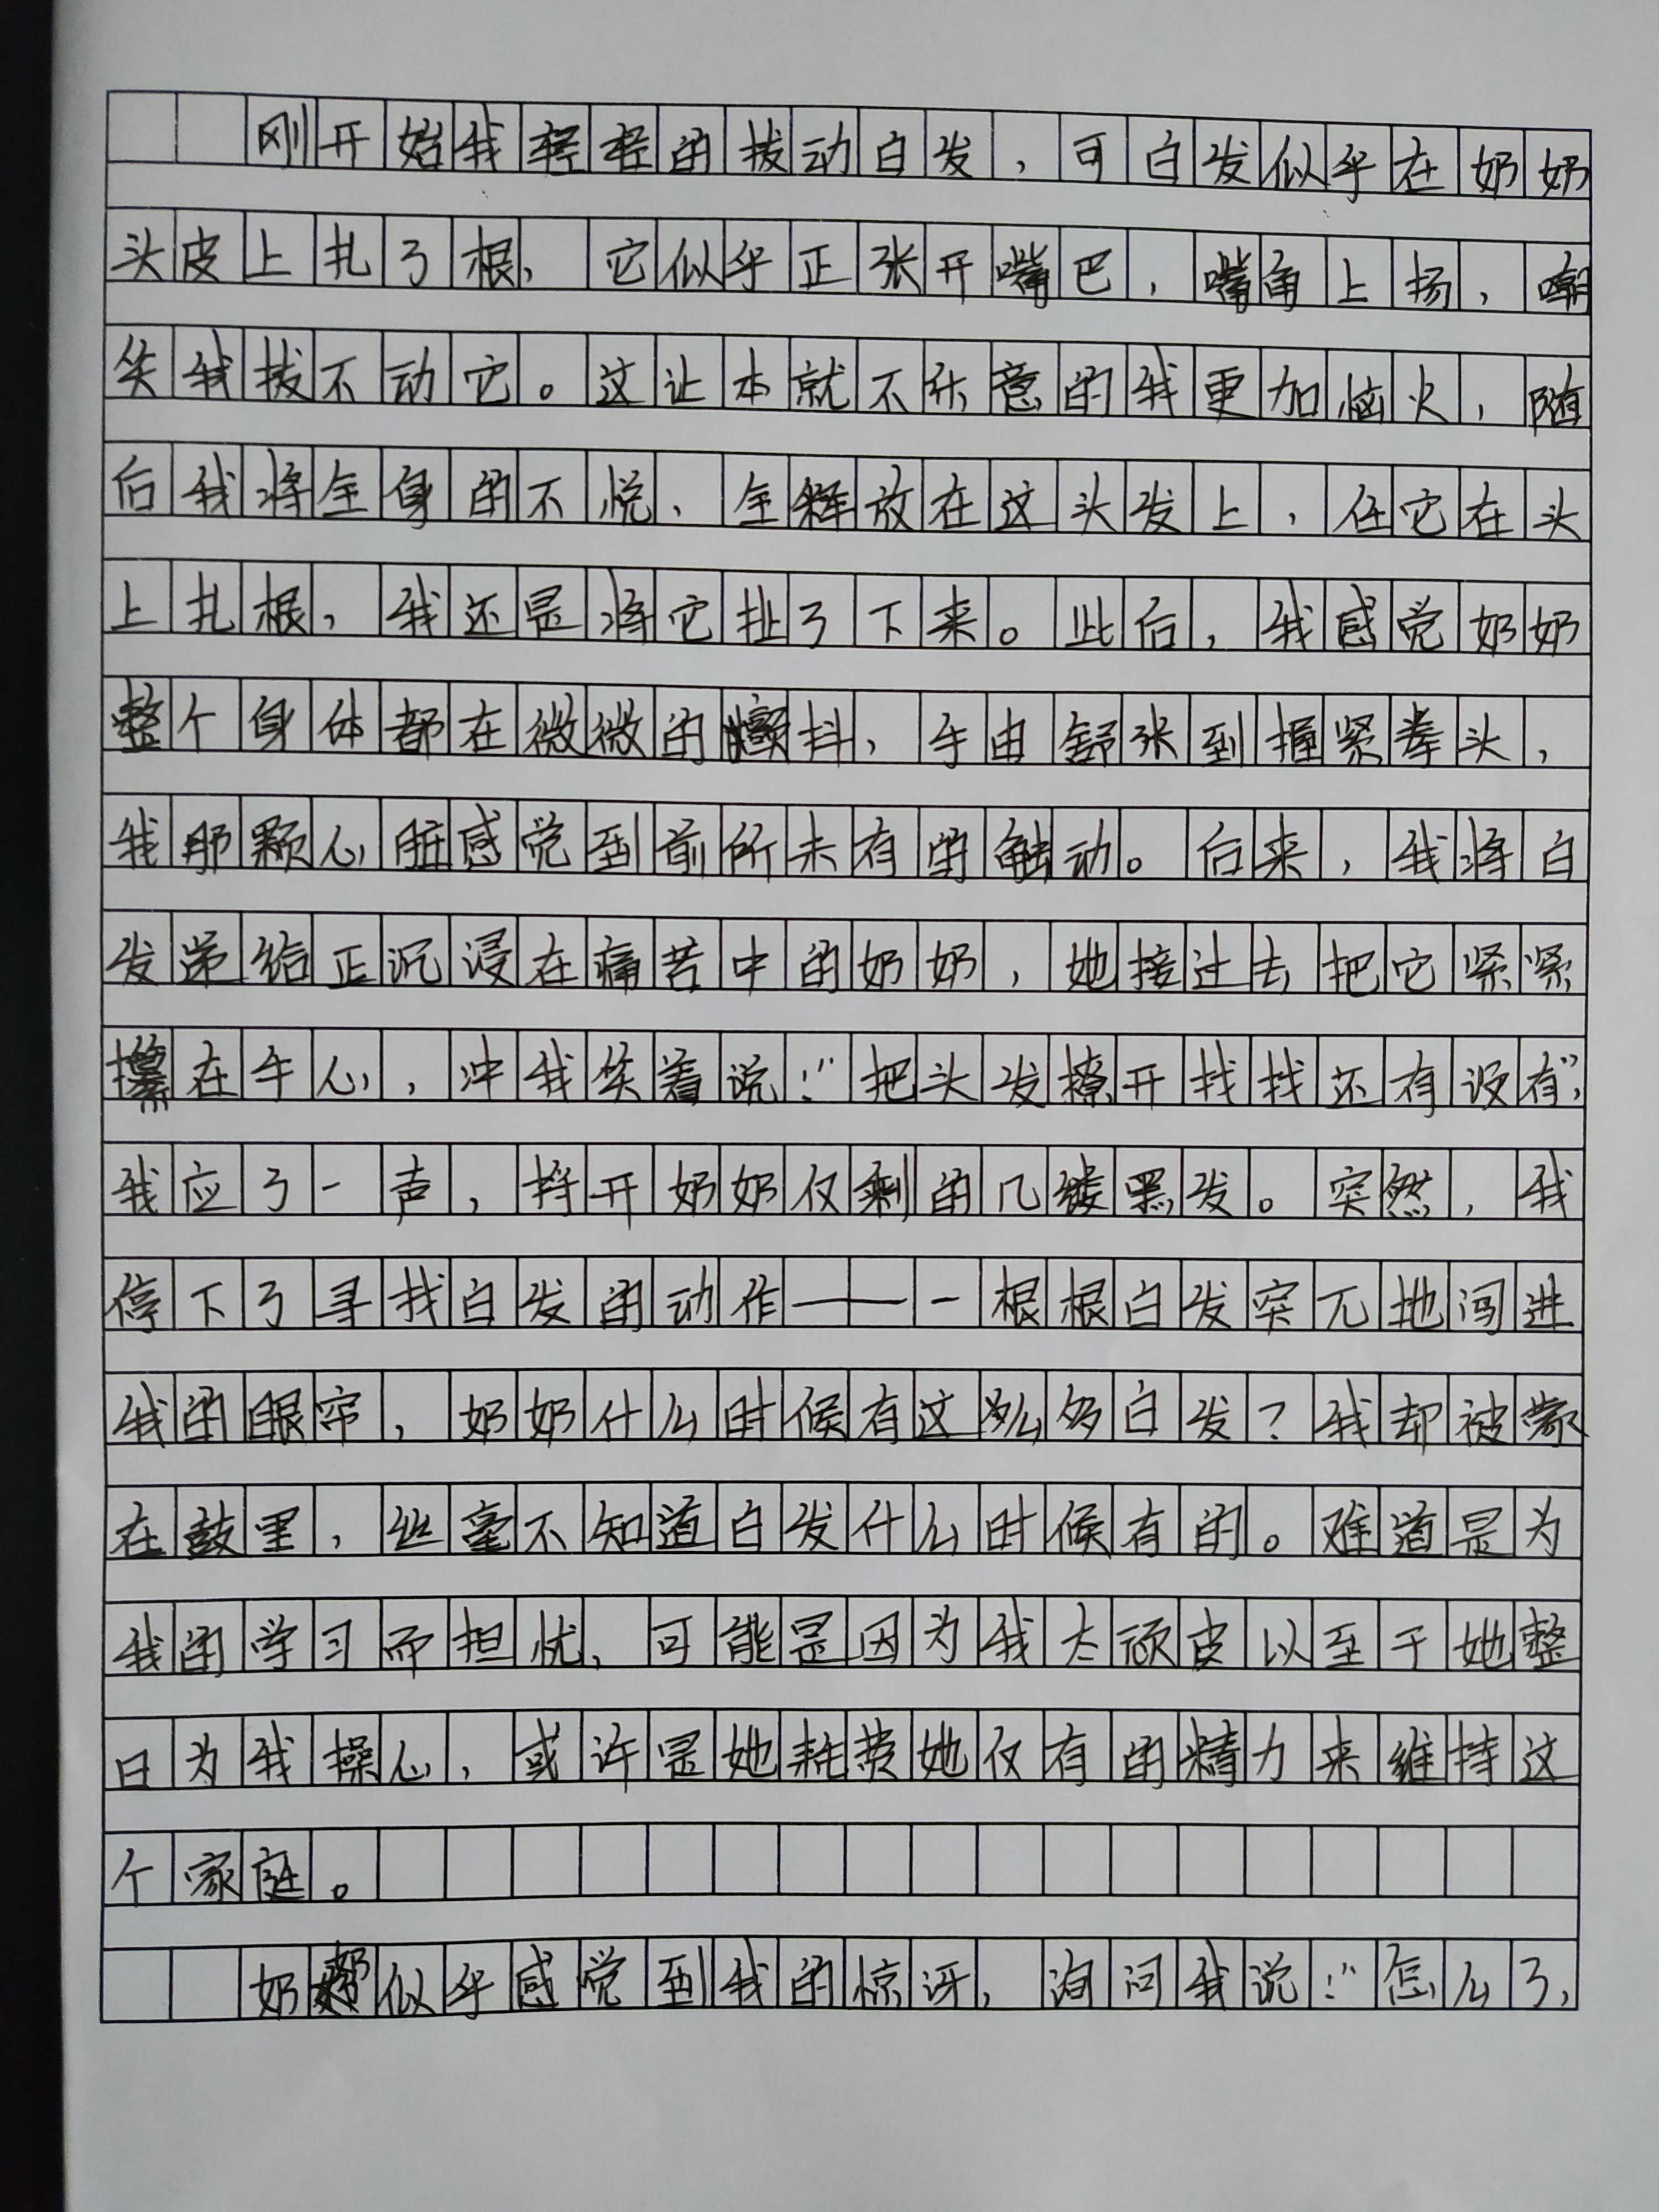 刚开始我轻轻的拔动白发，可白发似乎在奶奶
头皮上扎了根，它似乎正张开嘴巴，嘴角上扬，嘲
笑我拔不动它。这让本就不乐意的我更加恼火，随
后我将全身的不悦、全释放在这头发上，任它在头
上扎根，我还是将它扯了下来。此后，我感觉奶奶
整个身体都在微微的颤抖，手由舒张到握紧拳头，
我那颗心脏感觉到前所未有的触动。后来，我将白
发递给正沉浸在痛苦中的奶奶，她接过去把它紧紧
攥在手心，冲我笑着说：“把头发撩开找找还有没有”，
我应了一声，捋开奶奶仅剩的几缕黑发。突然，我
停下了寻找白发的动作——一根根白发突兀地闯进
我的眼帘，奶奶什么时候有这么多白发？我却被蒙
在鼓里，丝毫不知道白发什么时候有的。难道是为
我的学习而担忧、可能是因为我太顽皮以至于她整
日为我操心，或许是她耗费她仅有的精力来维持这
个家庭。
奶奶似乎感觉到我的惊讶，询问我说：“怎么了，